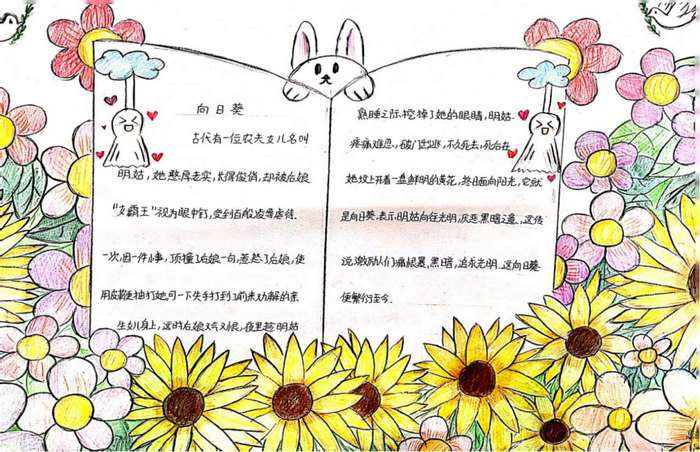 向日葵
古代有一位农夫女儿名叫
明姑，她憨厚老实，长得俊俏，却被后娘
"女霸王"视为眼中钉，受到百般凌辱虐待。
一次，因一件小事，顶撞了后娘一句，惹怒了后娘，使
用皮鞭抽打她可一下失手打到了前来劝解的亲
生女儿身上，这时后娘又气又恨，夜里趁明姑
熟睡之际，挖掉了她的眼睛，明姑
疼痛难忍，破门出逃，不久死去，死后在
她坟上开着一盘鲜明的黄花，终日面向阳光，它就
是向日葵。表示明姑向往光明，厌恶黑暗之意，这传
说激励人们痛恨暴、黑暗，追求光明。这向日葵
便繁衍至今。